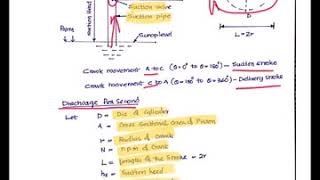 Suction valve
Suction pipe
Patm
Suction head
Sump level
D
L = 2r
Crank movement A to C (θ = 0° to θ = 180°) - Suction stroke
Crank movement C to A (θ = 180° to θ = 360°) - Delivery stroke
Discharge Per Second
Let D = Dia of cylinder
A = Cross Sectional area of Piston
r = Radius of Crank
N = r.p.m of Crank
L = Length of the Stroke = 2r
hs = Suction head